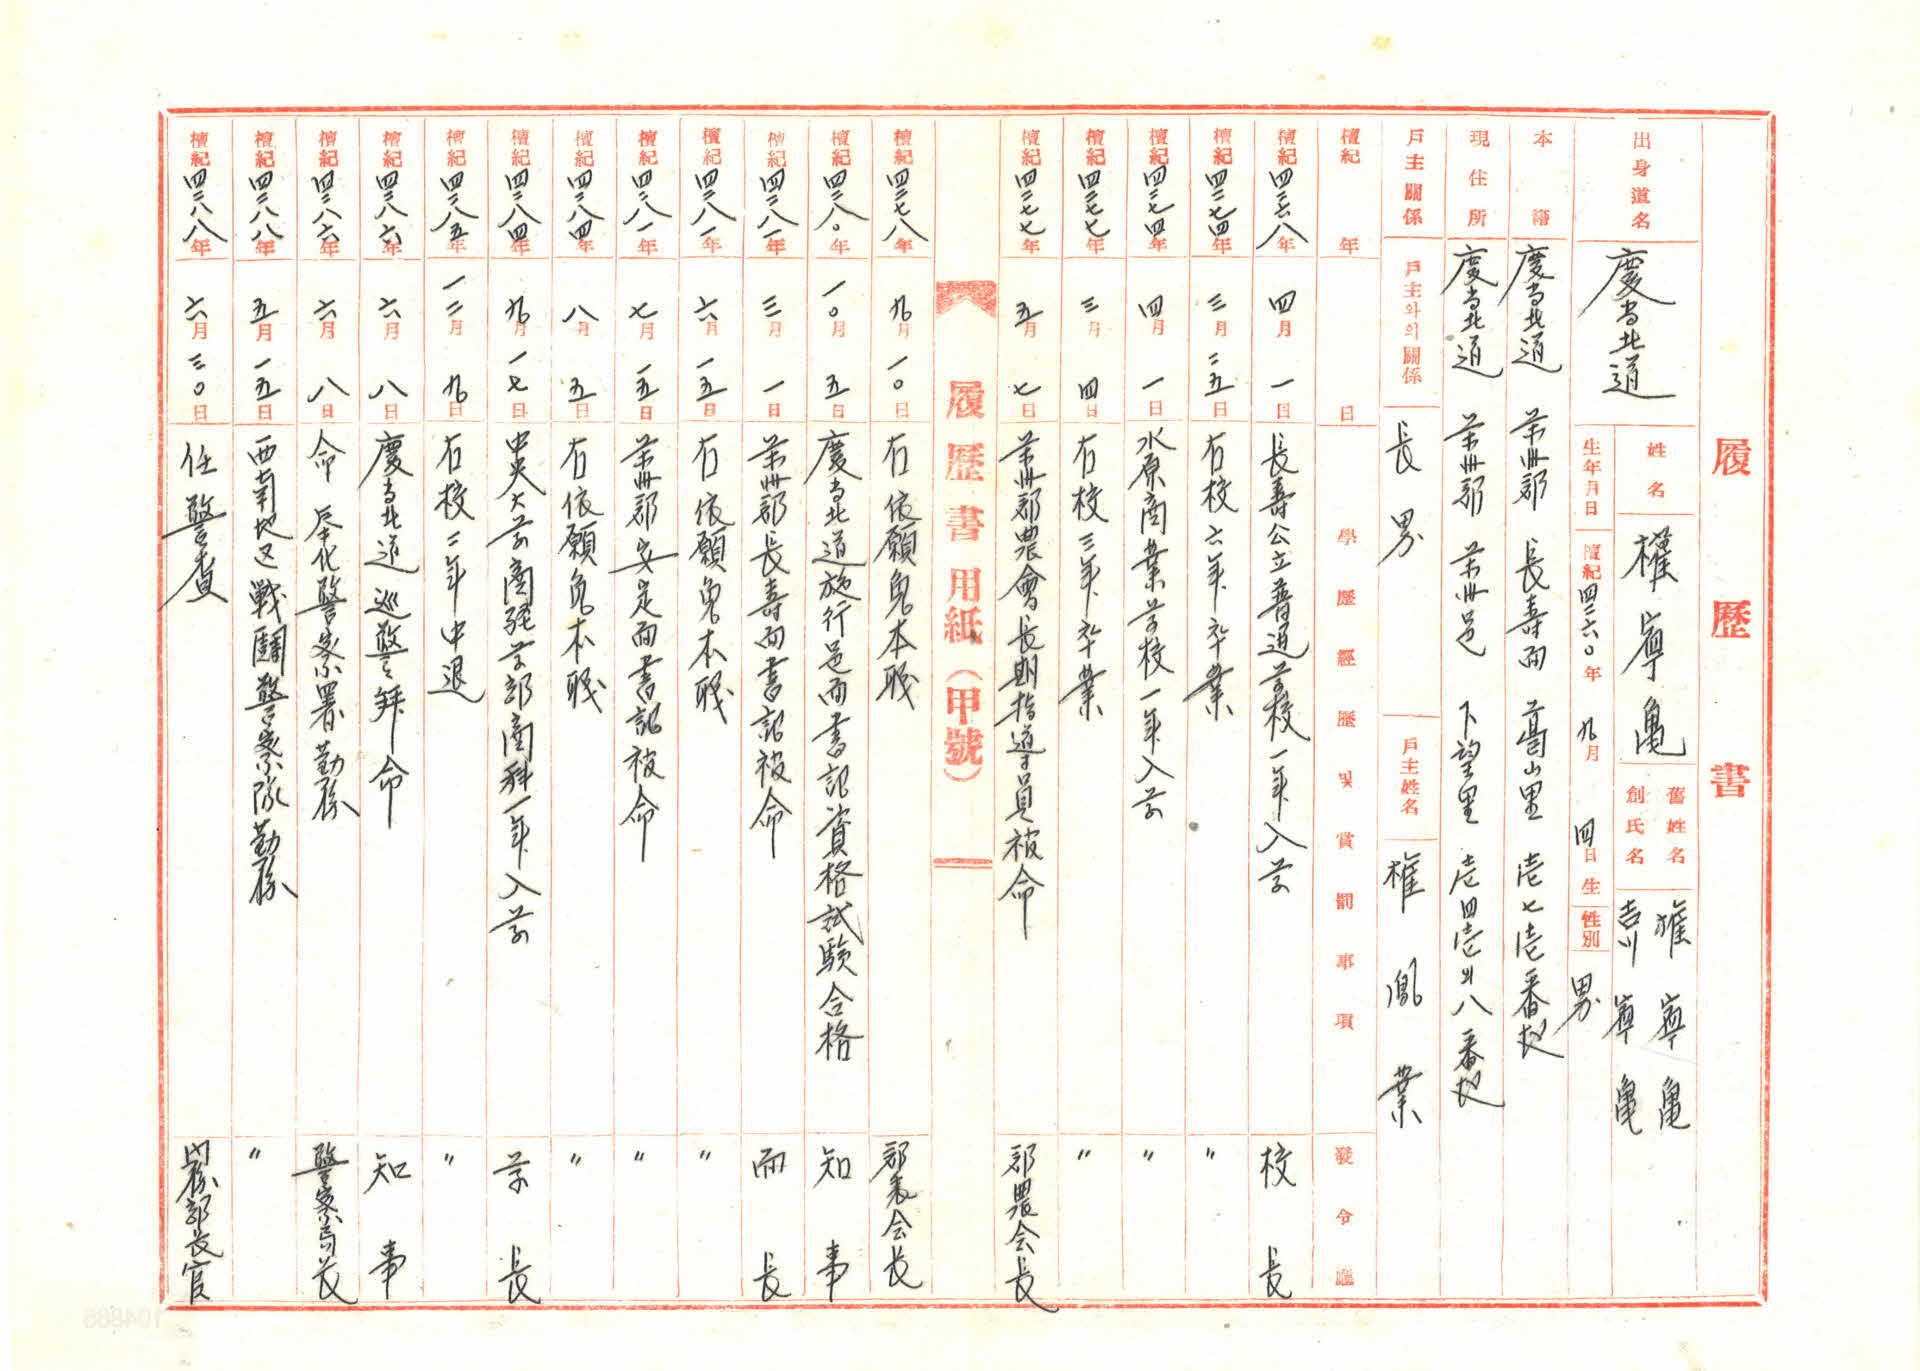 履歷書
出身道名 慶尙北道
姓名 權寧龜
舊姓名 權寧龜
創氏名 吉川寧龜
生年月日 檀紀四二六〇年 九月 四日生 性別 男
本籍 慶尙北道 榮州郡 長壽面 葛山里 壱七壱番地
現住所 慶尙北道 榮州郡 榮州邑 下望里 壱四壱의八番地
戶主關係 戶主와의關係 長男 戶主姓名 權鳳業
檀紀 年 月 日 學歷經歷및賞罰事項 發令廳
檀紀四二六八年 四月 一日 長壽公立普通学校一年入学 校長
檀紀四二七四年 三月 二五日 右校六年卒業 〃
檀紀四二七四年 四月 一日 水原商業学校一年入学 〃
檀紀四二七七年 三月 四日 右校三年卒業 〃
檀紀四二七七年 五月 七日 榮州郡農會長期指導員被命 郡農会長
履歷書用紙(甲號)
檀紀四二七八年 九月 一〇日 右依願免本職 郡農会長
檀紀四二八〇年 一〇月 五日 慶尙北道施行邑面書記資格試験合格 知事
檀紀四二八一年 三月 一日 榮州郡長壽面書記被命 面長
檀紀四二八一年 六月 一五日 右依願免本職 〃
檀紀四二八一年 七月 一五日 榮州郡安定面書記被命 〃
檀紀四二八四年 八月 五日 右依願免本職 〃
檀紀四二八四年 九月 一七日 中央大学商経学部商科一年入学 学長
檀紀四二八五年 一二月 九日 右校二年中退 〃
檀紀四二八六年 六月 八日 慶尙北道巡警拜命 知事
檀紀四二八六年 六月 八日 命 奉化警察署勤務 警察局長
檀紀四二八八年 五月 一五日 西南地区戰鬪警察隊勤務 〃
檀紀四二八八年 六月 三〇日 任警査 內務部長官
104865